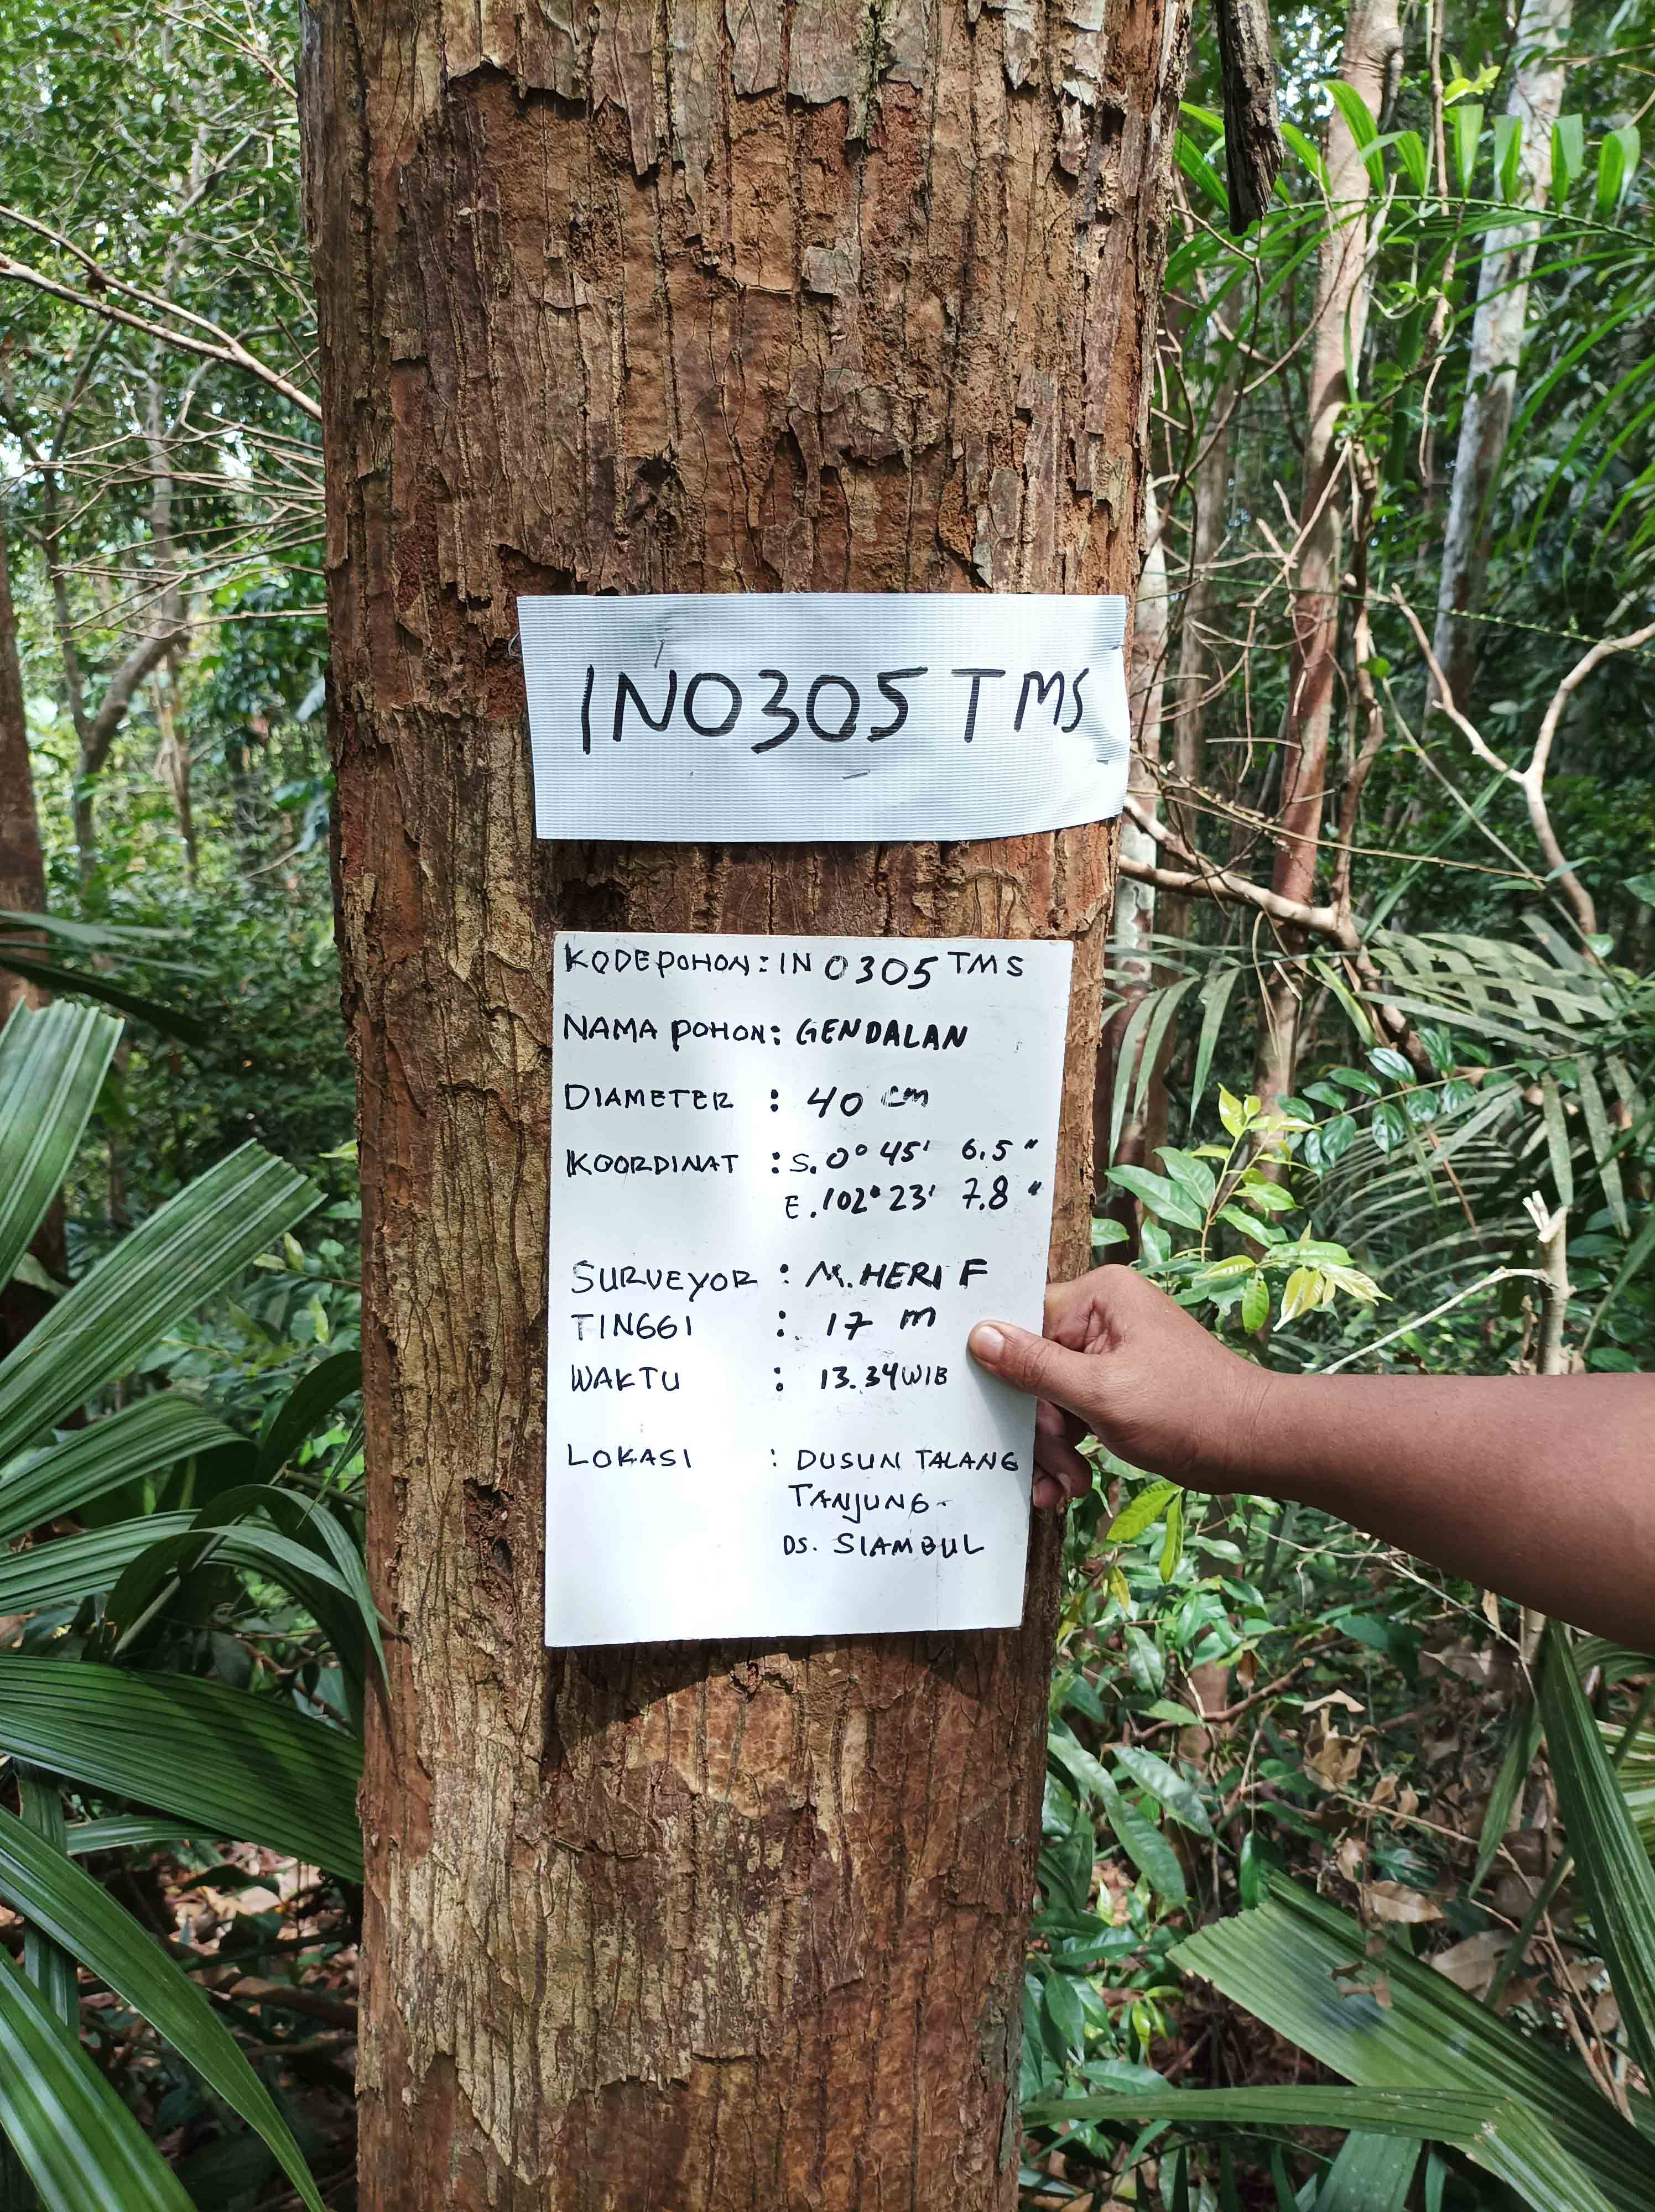 IN0305 TMS
KODE POHON : IN 0305 TMS
NAMA POHON : GENDALAN
DIAMETER : 40 cm
KOORDINAT : S. 0° 45' 6.5"
E. 102° 23' 7.8"
SURVEYOR : M. HERI F
TINGGI : 17 m
WAKTU : 13.34 WIB
LOKASI : DUSUN TALANG
TANJUNG -
DS. SIAMBUL